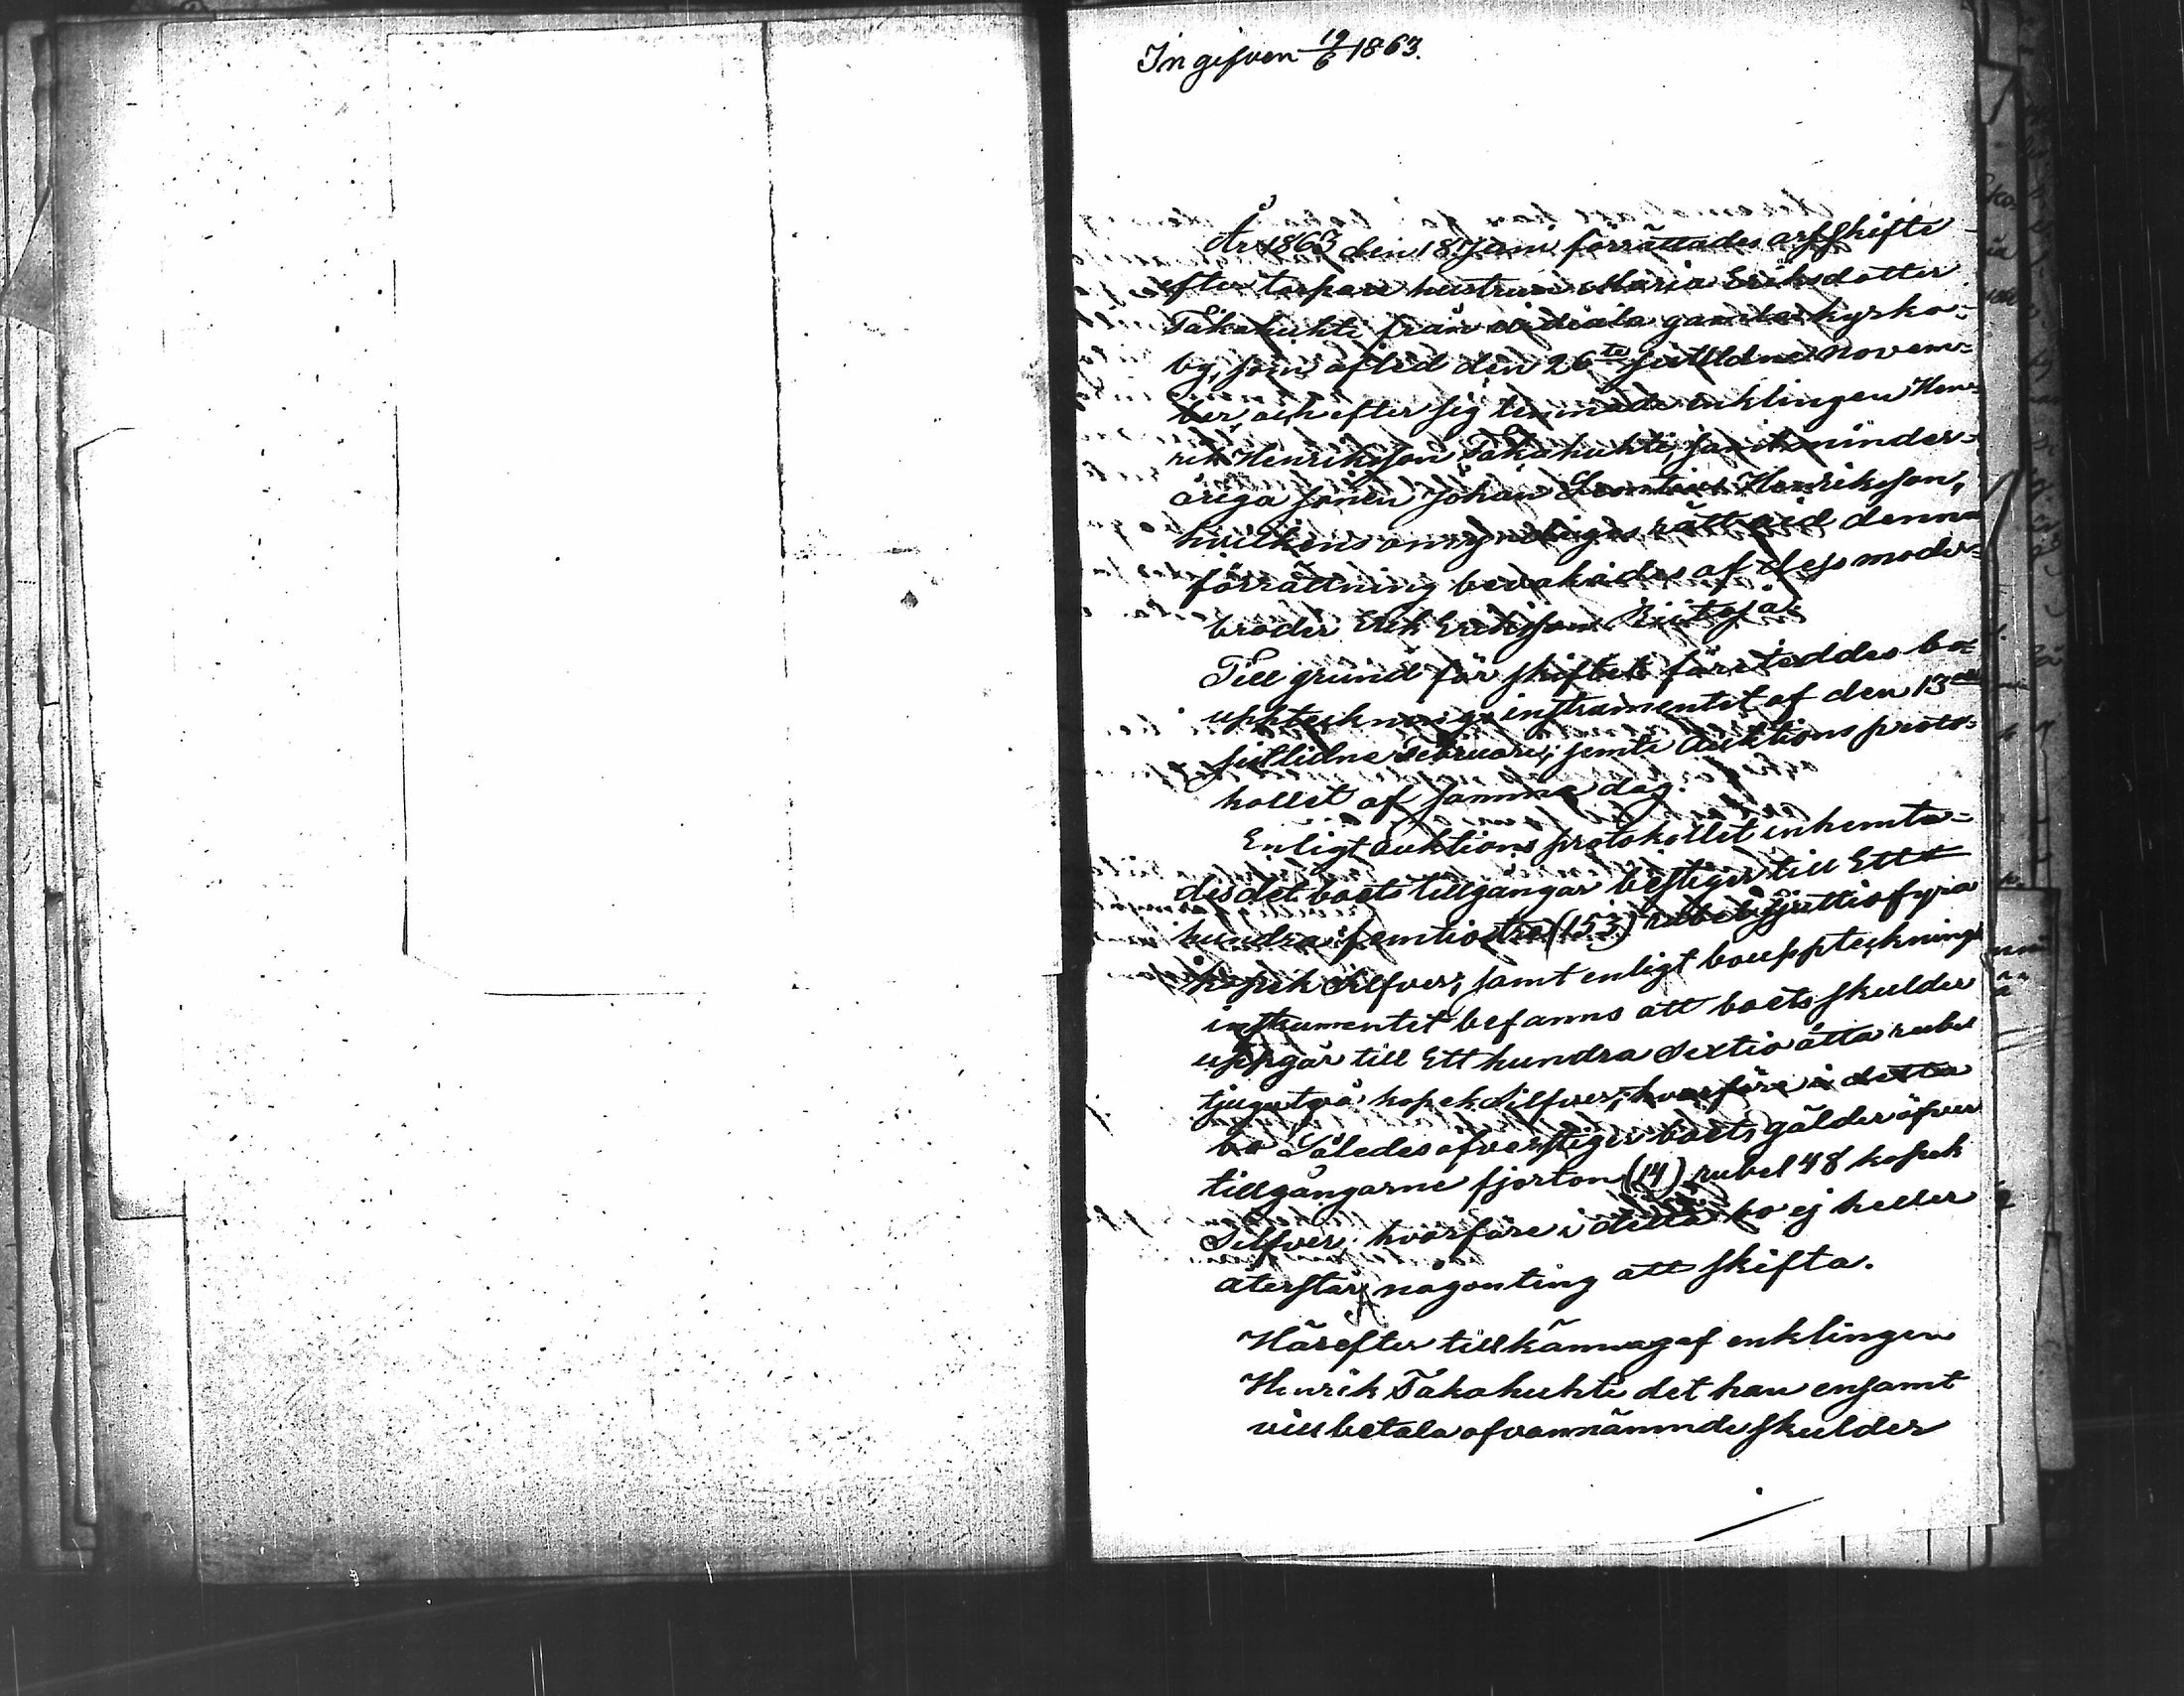 Ingifven 19/6 1863.
År 1863 den 18 Juni förrättades arfskifte
efter torpare hustrun Maria Eriksdotter
Takahuhti från gamla kyrko-
by, som afled den 26te sistledne Novem-
ber, och efter sig lemnade enklingen Hen-
rik Henriksson Takahuhti, samt minder-
åriga sonen Johan Henriksson,
hvilkens omyndiges rätt vid denna
förrättning bevakades af dess moder-
broder Erik Eriksson
Till grund för skiftet företeddes bo-
upptecknings instrumentet af den 13de
sistlidne Februari, jemte Auktions proto-
kollet af samma dag.
Enligt auktions protokollet inhemta-
des det boets tillgångar bestiger till Ett
hundra femtiotre (153) rubel sjuttiofyra
kopek Silfver, samt enligt boupptecknings
instrumentet befanns att boets skulder
uppgår till Ett hundra sextio åtta rubel
tjugutvå kopek Silfver, hvarföre i detta
bo Således öfverstiger boets gälder öfver
tillgångarne fjorton (14) rubel 48 kopek
Silfver; hvarföre i detta bo ej heller
återstår någonting att skifta.
Härefter tillkännagaf enklingen
Henrik Takahuhti det han ensamt
vill betala ofvannämnde skulder